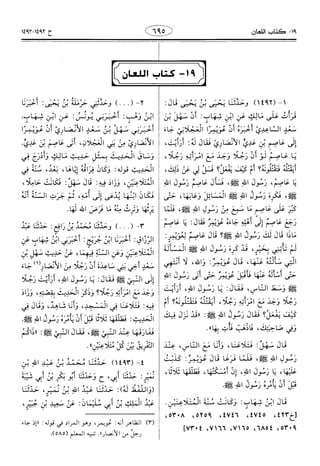 ١٩- كتاب اللعان
٦٩٥
ح ١٤٩٢-١٤٩٣
١٩- كتاب اللعان
١- (١٤٩٢) وَحَدَّثَنَا يَحْيَى بْنُ يَحْيَى قَالَ:
قَرَأْتُ عَلَى مَالِكٍ عَنِ ابْنِ شِهَابٍ: أَنَّ سَهْلَ بْنَ
سَعْدٍ السَّاعِدِيَّ أَخْبَرَهُ أَنَّ عُوَيْمِرًا الْعَجْلَانِيَّ جَاءَ
إِلَى عَاصِمِ بْنِ عَدِيٍّ الْأَنْصَارِيِّ فَقَالَ لَهُ: أَرَأَيْتَ،
يَا عَاصِمُ لَوْ أَنَّ رَجُلًا وَجَدَ مَعَ امْرَأَتِهِ رَجُلًا،
أَيَقْتُلُهُ فَتَقْتُلُونَهُ؟ أَمْ كَيْفَ يَفْعَلُ؟ فَسَلْ لِي عَنْ ذٰلِكَ،
يَا عَاصِمُ، رَسُولَ اللهِ ﷺ، فَسَأَلَ عَاصِمٌ رَسُولَ اللهِ
ﷺ، فَكَرِهَ رَسُولُ اللهِ ﷺ الْمَسَائِلَ وَعَابَهَا، حَتَّى
كَبُرَ عَلَى عَاصِمٍ مَا سَمِعَ مِنْ رَسُولِ اللهِ ﷺ، فَلَمَّا
رَجَعَ عَاصِمٌ إِلَى أَهْلِهِ جَاءَهُ عُوَيْمِرٌ فَقَالَ: يَا عَاصِمُ
مَاذَا قَالَ لَكَ رَسُولُ اللهِ ﷺ؟ قَالَ عَاصِمٌ لِعُوَيْمِرٍ:
لَمْ تَأْتِنِي بِخَيْرٍ، قَدْ كَرِهَ رَسُولُ اللهِ ﷺ الْمَسْأَلَةَ
الَّتِي سَأَلْتُهُ عَنْهَا، قَالَ عُوَيْمِرٌ: وَاللهِ، لَا أَنْتَهِي
حَتَّى أَسْأَلَهُ عَنْهَا فَأَقْبَلَ عُوَيْمِرٌ حَتَّى أَتَى رَسُولَ اللهِ
ﷺ وَسَطَ النَّاسِ، فَقَالَ: يَا رَسُولَ اللهِ، أَرَأَيْتَ
رَجُلًا وَجَدَ مَعَ امْرَأَتِهِ رَجُلًا، أَيَقْتُلُهُ فَتَقْتُلُونَهُ؟ أَمْ
كَيْفَ يَفْعَلُ؟ فَقَالَ رَسُولُ اللهِ ﷺ: «قَدْ نَزَلَ فِيكَ
وَفِي صَاحِبَتِكَ، فَاذْهَبْ فَأْتِ بِهَا».
قَالَ سَهْلٌ: فَتَلَاعَنَا، وَأَنَا مَعَ النَّاسِ، عِنْدَ
رَسُولِ اللهِ ﷺ، فَلَمَّا فَرَغَا قَالَ عُوَيْمِرٌ: كَذَبْتُ
عَلَيْهَا، يَا رَسُولَ اللهِ، إِنْ أَمْسَكْتُهَا، فَطَلَّقَهَا ثَلَاثًا،
قَبْلَ أَنْ يَأْمُرَهُ رَسُولُ اللهِ ﷺ.
قَالَ ابْنُ شِهَابٍ: فَكَانَتْ سُنَّةَ الْمُتَلَاعِنَيْنِ.
[خ٤٢٣، ٤٧٤٥، ٤٧٤٦، ٥٢٥٩، ٥٣٠٨،
٥٣٠٩، ٦٨٥٤، ٧١٦٥، ٧١٦٦، ٧٣٠٤]
٢- (...) وَحَدَّثَنِي حَرْمَلَةُ بْنُ يَحْيَى: أَخْبَرَنَا
ابْنُ وَهْبٍ: أَخْبَرَنِي يُونُسُ: عَنِ ابْنِ شِهَابٍ:
أَخْبَرَنِي سَهْلُ بْنُ سَعْدٍ الْأَنْصَارِيُّ أَنَّ عُوَيْمِرًا
الْأَنْصَارِيَّ مِنْ بَنِي الْعَجْلَانِ، أَتَى عَاصِمَ بْنَ عَدِيٍّ.
وَسَاقَ الْحَدِيثَ بِمِثْلِ حَدِيثِ مَالِكٍ وَأَدْرَجَ فِي
الْحَدِيثِ قَوْلَهُ: وَكَانَ فِرَاقُهُ إِيَّاهَا، بَعْدُ، سُنَّةً فِي
الْمُتَلَاعِنَيْنِ، وَزَادَ فِيهِ: قَالَ سَهْلٌ: فَكَانَتْ حَامِلًا،
فَكَانَ ابْنُهَا يُدْعَى إِلَى أُمِّهِ، ثُمَّ جَرَتِ السُّنَّةُ أَنَّهُ
يَرِثُهَا وَتَرِثُ مِنْهُ مَا فَرَضَ اللهُ لَهَا.
٣- (...) وَحَدَّثَنَا مُحَمَّدُ بْنُ رَافِعٍ: حَدَّثَنَا عَبْدُ
الرَّزَّاقِ: أَخْبَرَنَا ابْنُ جُرَيْجٍ: أَخْبَرَنِي ابْنُ شِهَابٍ عَنِ
الْمُتَلَاعِنَيْنِ وَعَنِ السُّنَّةِ فِيهِمَا، عَنْ حَدِيثِ سَهْلِ بْنِ
سَعْدٍ أَخِي بَنِي سَاعِدَةَ أَنَّ رَجُلًا مِنَ الْأَنْصَارِ جَاءَ
إِلَى النَّبِيِّ ﷺ فَقَالَ: يَا رَسُولَ اللهِ، أَرَأَيْتَ رَجُلًا
وَجَدَ مَعَ امْرَأَتِهِ رَجُلًا؟ وَذَكَرَ الْحَدِيثَ بِقِصَّتِهِ، وَزَادَ
فِيهِ: فَتَلَاعَنَا فِي الْمَسْجِدِ، وَأَنَا شَاهِدٌ، وَقَالَ فِي
الْحَدِيثِ: فَطَلَّقَهَا ثَلَاثًا قَبْلَ أَنْ يَأْمُرَهُ رَسُولُ اللهِ ﷺ.
فَفَارَقَهَا عِنْدَ النَّبِيِّ ﷺ، فَقَالَ النَّبِيُّ ﷺ: «ذَاكُمُ
التَّفْرِيقُ بَيْنَ كُلِّ مُتَلَاعِنَيْنِ».
٤- (١٤٩٣) حَدَّثَنَا مُحَمَّدُ بْنُ عَبْدِ اللهِ بْنِ
نُمَيْرٍ: حَدَّثَنَا أَبِي، ح وَحَدَّثَنَا أَبُو بَكْرِ بْنُ أَبِي شَيْبَةَ
(وَاللَّفْظُ لَهُ): حَدَّثَنَا عَبْدُ اللهِ بْنُ نُمَيْرٍ، حَدَّثَنَا
عَبْدُ الْمَلِكِ بْنُ أَبِي سُلَيْمَانَ: عَنْ سَعِيدِ بْنِ جُبَيْرٍ،
(٣) الظاهر أنه: عويمر، وهو المراد في قوله: «إذ جاء
رجلٌ من الأنصار». تنبيه المعلم (٥٨٥).